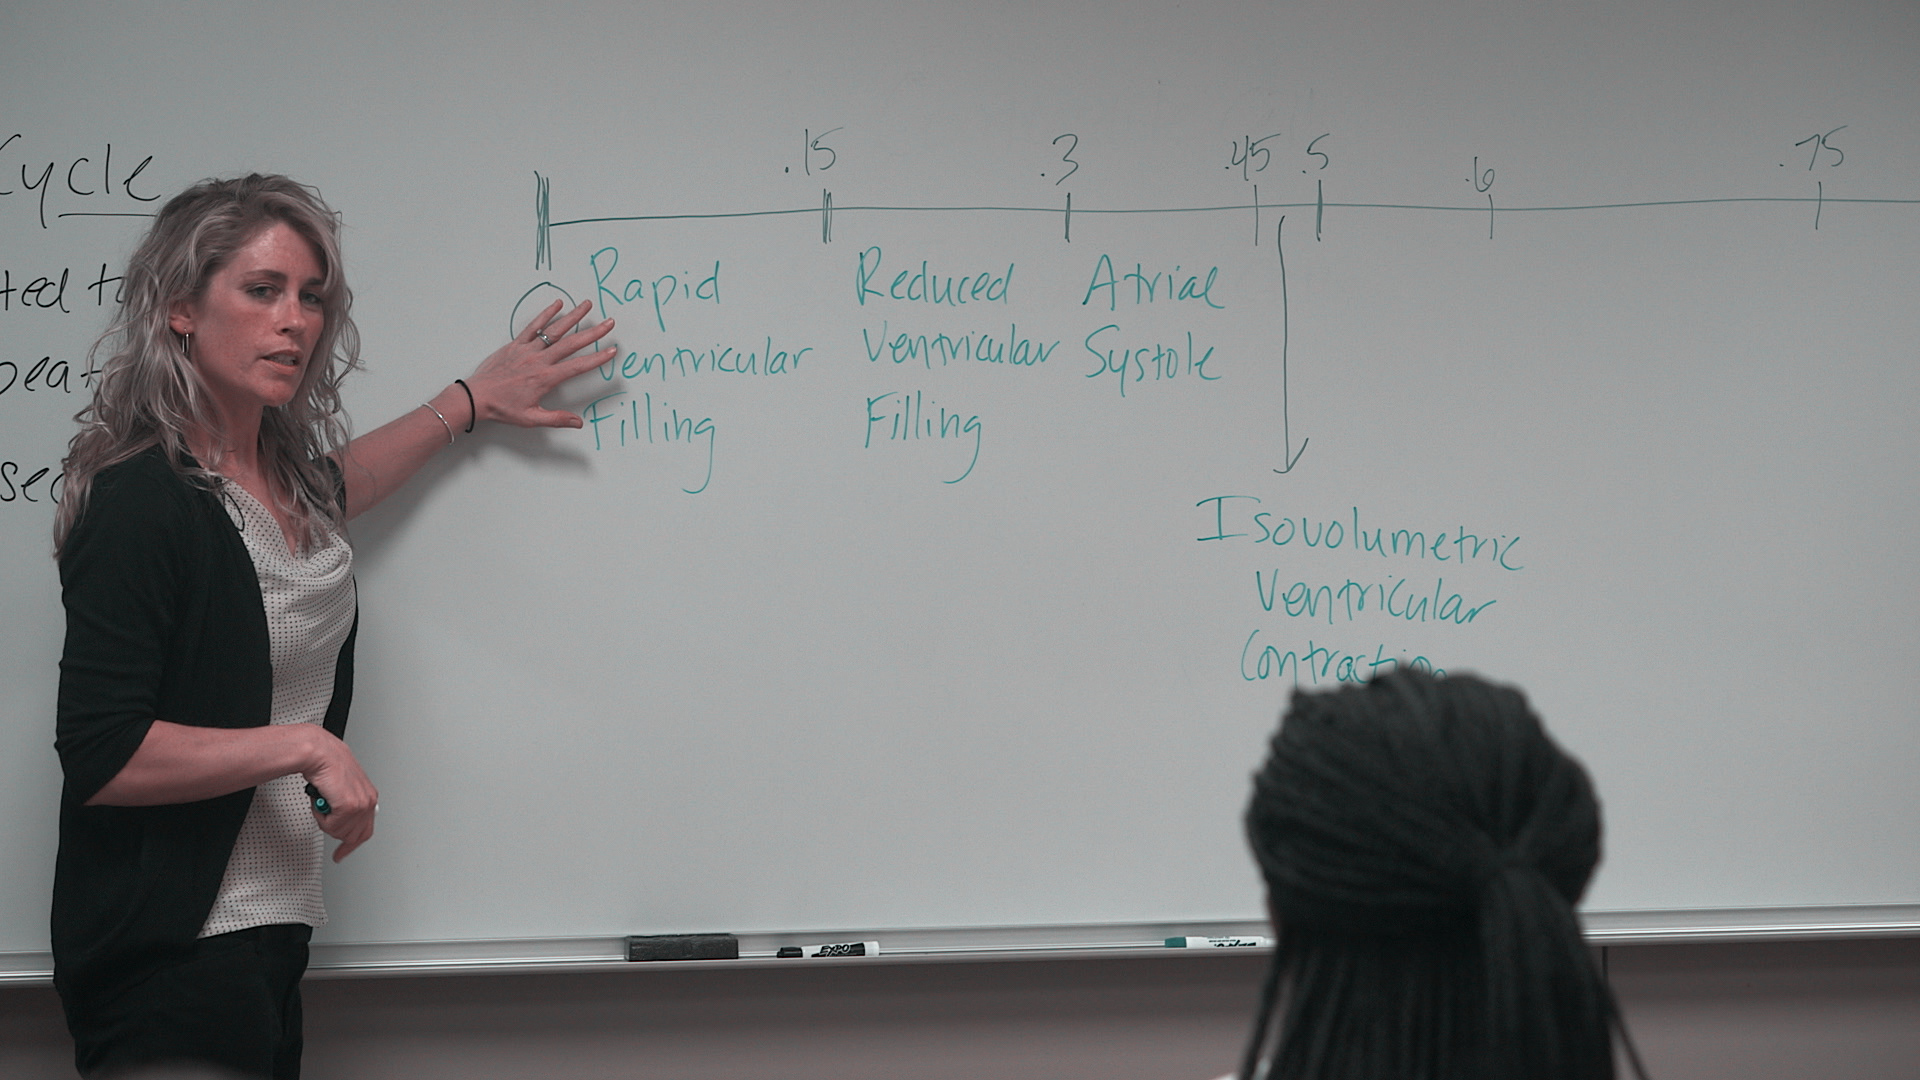 Cycle
.15 .3 .45 .5 .6 .75
Rapid
Ventricular
Filling
Reduced
Ventricular
Filling
Atrial
Systole
Isovolumetric
Ventricular
Contraction
EXPO